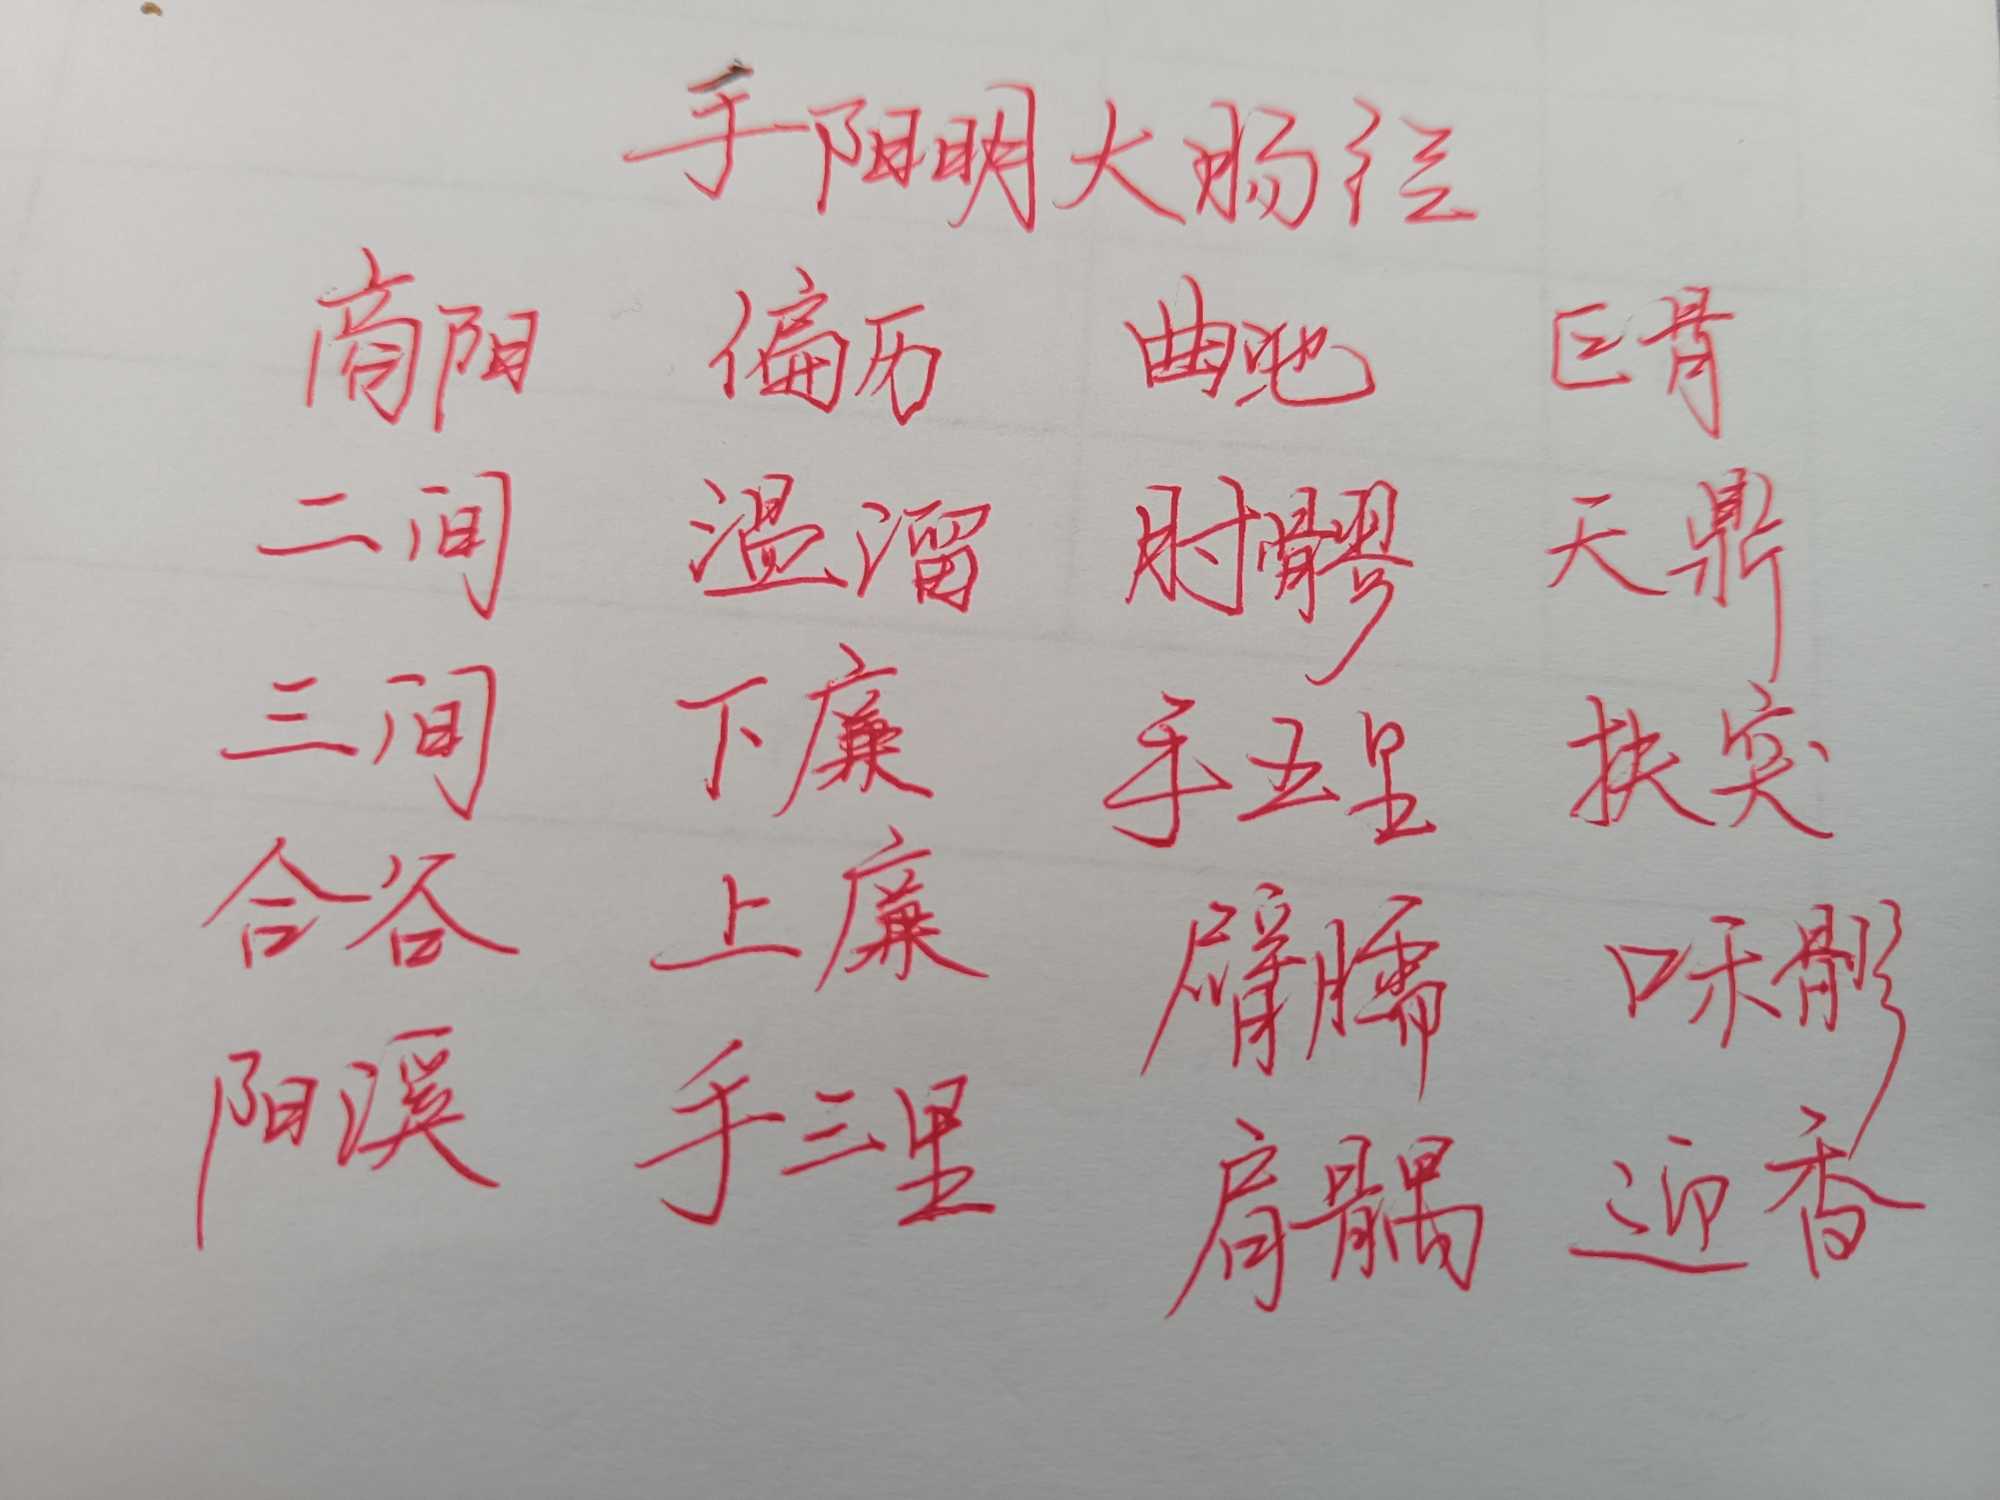 手阳明大肠经
商阳 偏历 曲池 巨骨
二间 温溜 肘髎 天鼎
三间 下廉 手五里 扶突
合谷 上廉 臂臑 口禾髎
阳溪 手三里 肩髃 迎香